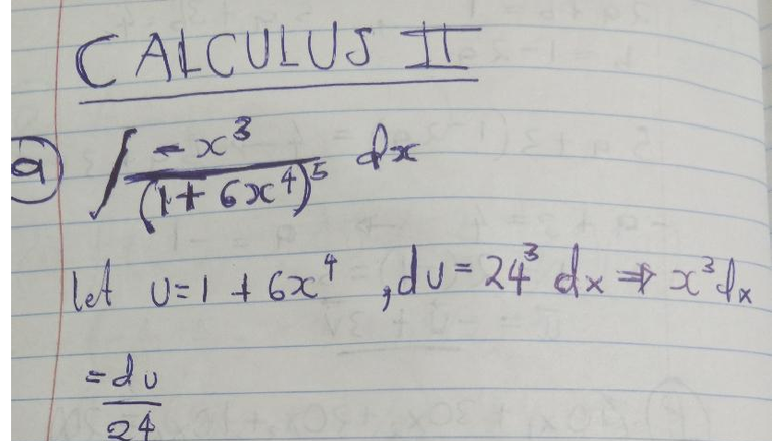 CALCULUS II
a) ∫ -x³/(1+6x⁴)⁵ dx
let u=1+6x⁴, du=24³ dx ⇒ x³dx
= du/24